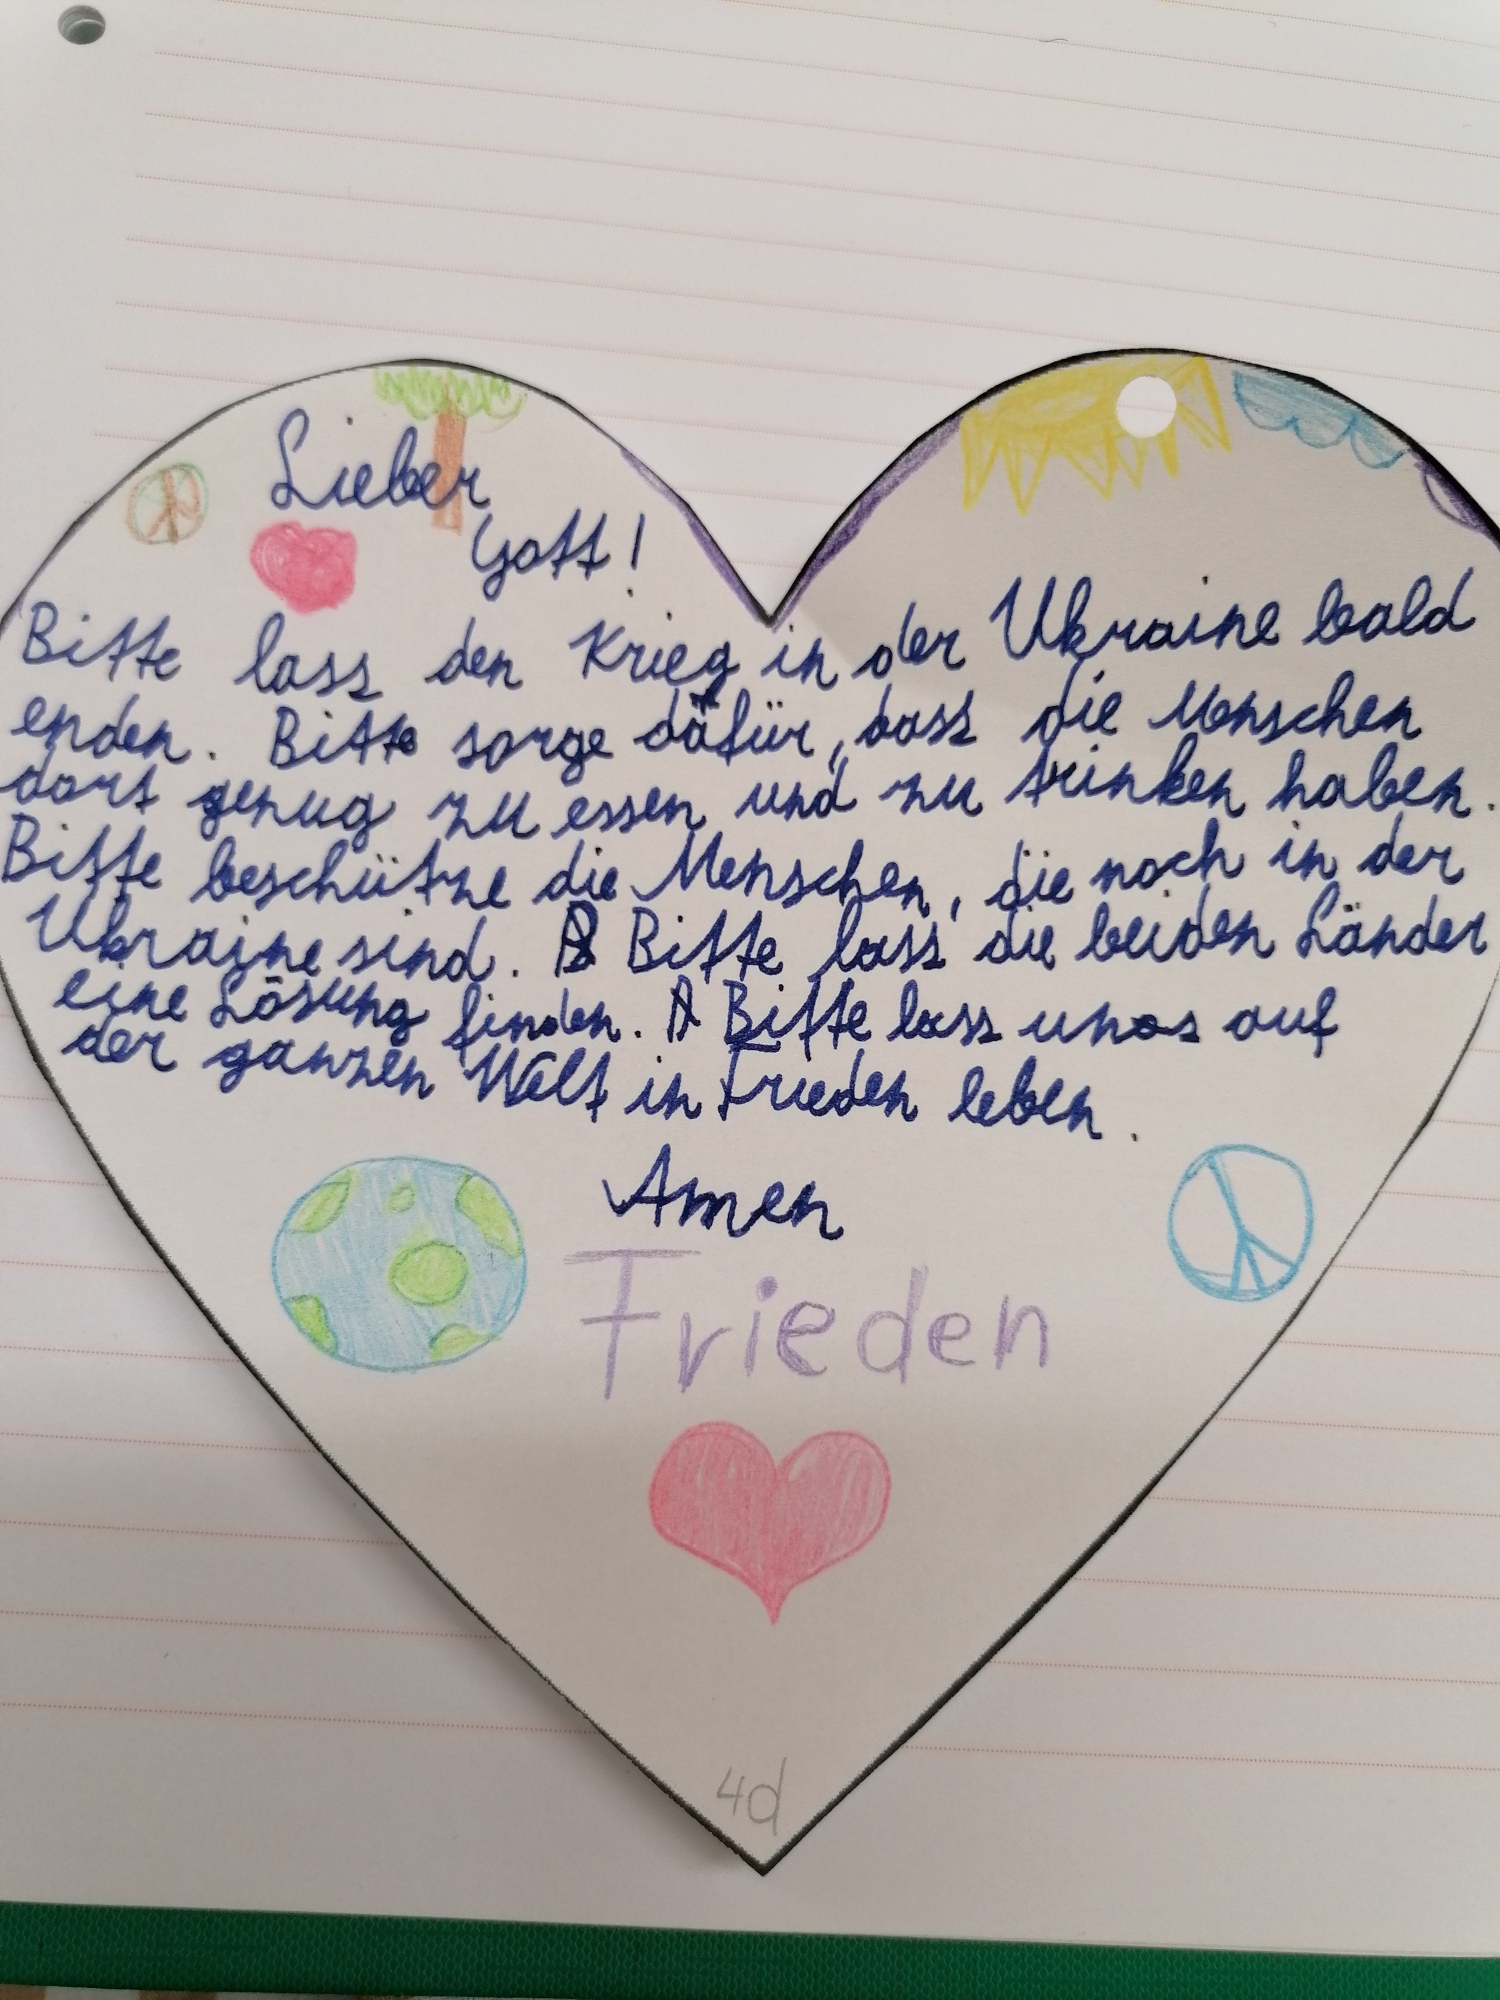 Lieber
Gott!
Bitte lass den Krieg in der Ukraine bald
enden. Bitte sorge dafür, dass die Menschen
dort genug zu essen und zu trinken haben.
Bitte beschütze die Menschen, die noch in der
Ukraine sind. Bitte lass die beiden Länder
eine Lösung finden. Bitte lass uns auf
der ganzen Welt in Frieden leben.
Amen
Frieden
4d